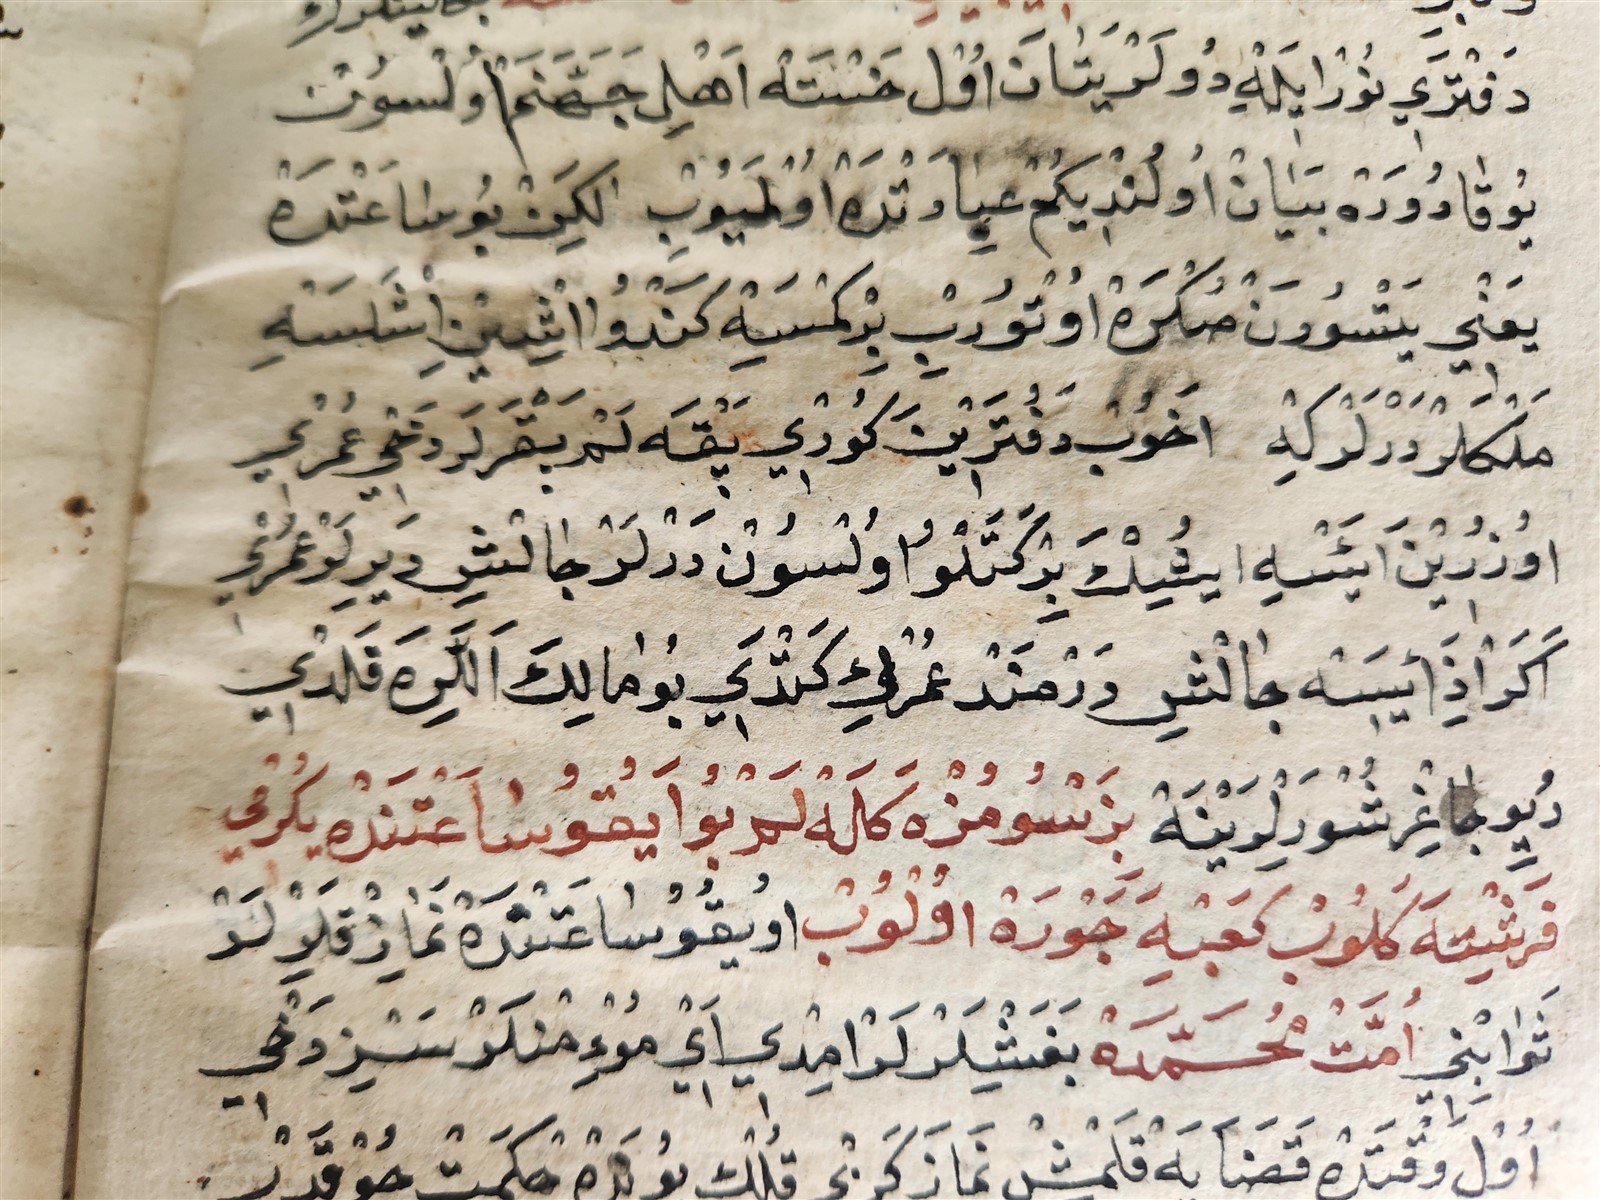 دَفْتَرَي نُوْرْ ايلَهْ دُولَرْ يَتَانَ اُوْل خَسْتَهْ اَهْلِ جَهَنَّمْ اُولْسُونْ
يُوقَادُورَهْ بَيَانْ اُولُنْدِيكُمْ عِبَادَتْدَهْ اُوْلمَيُوبِ لكِنْ بُو سَاعَتْدَهْ
يَعْنِي يَتْسُودَنْ صُكْرَهْ اُوتُورُبْ بِرْ كمْسَهِ كَنْدُو اِشِيْنِ اِشْلَسَهِ
مَلَكْلَرْ دَرْلَرْ كِهْ اخُوبْ دَفْتَرَيْنَ كُورْدِي بَقْمَه لَمْ بَقَرْلَر دَخِي عُمْرِي
اوُزُرْينَ ايَتْسَهِ ايشُيڭ بَرَكَتْلُو اُولْسُونْ دَرْلَرْ جَالشِ وَيرِلَرْ عُمْرُنِي
اَكَرْ اذِايَسَه جَالشِ دَرْمَنْد عُمْرُڭِ كَتْدِي بُو مَا لِكَ اَللَّرَه قَلْدِي
دُيو جَاغِرشُورَلَرْ يَنَهْ بِزَتْسُومُزْه كَلَه لَمْ بُو ايقُو سَاعَتْنَدَه يكْرمِي
فَرِشْتِهَ كَلُوبْ كعْبَهِ جَوْرَهْ اُوْلُوبْ اوُيقُو سَاعَتِنْدَهْ نَمَازْ قلَرْلَرْ
ثَوَابْنِي اُمَّتْ مُحَمَّدَهْ بَغشْلَرْلَرْ امْدِي اَيْ مُؤمِنلَرْ سَيز دَخِي
اُوْل وَقْتَدَهْ قَضَايَهْ قَلْمِشْ نَمَازْكَزِي قِلُڭ بُونْدَهْ حكمَتْ جُوقْدَرْ